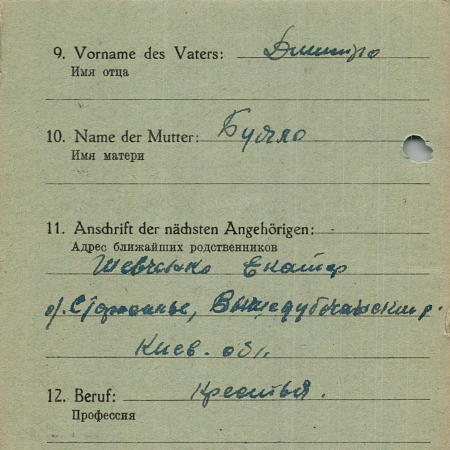 9. Vorname des Vaters: Дмитро
Имя отца
10. Name der Mutter: Бугло
Имя матери
11. Anschrift der nächsten Angehörigen:
Адрес ближайших родственников
Шевченко Екатер
Вышедубечанский р.
Киев. обл.
12. Beruf: Крестья.
Профессия